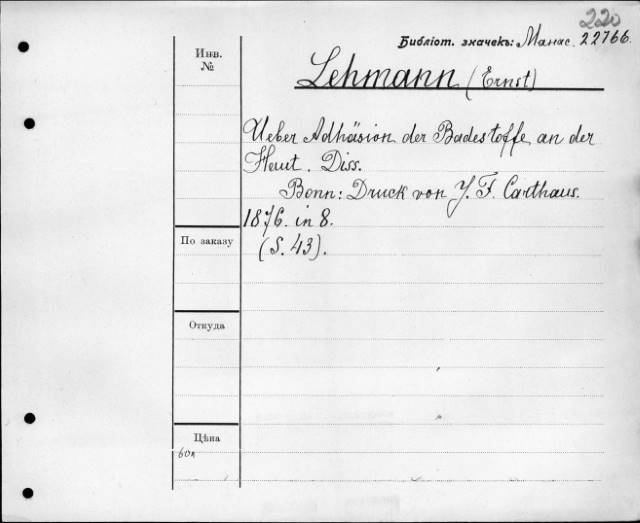 220
Библіот. значекъ: Манас. 22766.
Инв.
№
Lehmann (Ernst)
Ueber Adhäsion der Badestoffe an der
Haut. Diss.
Bonn: Druck von J. F. Carthaus.
1876. in 8.
По заказу
(S. 43).
Откуда
Цѣна
60к